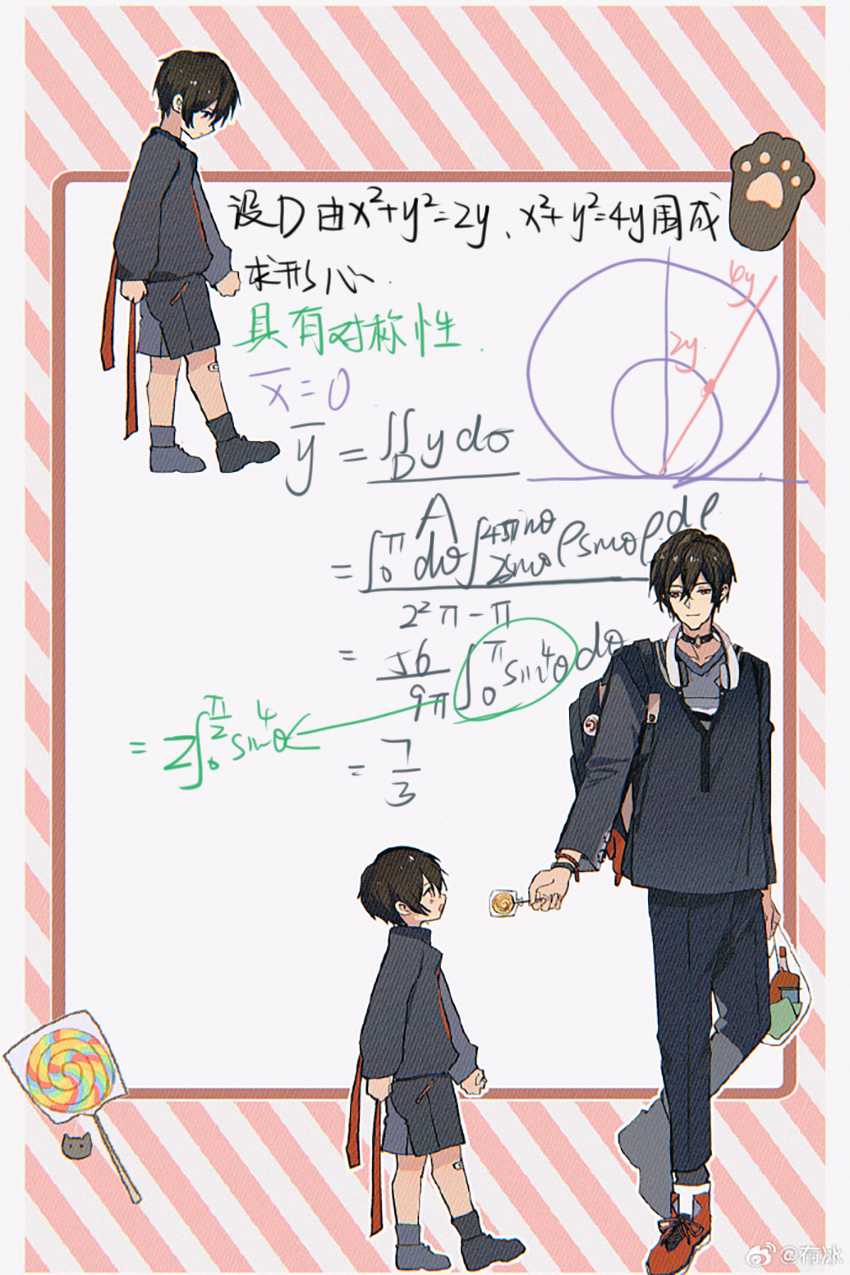 设D由x²+y²=2y、x²+y²=4y围成
求形心.
具有对称性.
x̄=0
4y
2y
ȳ = ∬_D y dσ / A
= ∫_0^π dθ ∫_{2sinθ}^{4sinθ} ρsinθ ρ dρ / 2²π-π
= 56/9π ∫_0^π sin⁴θ dθ
= 2∫_0^{π/2} sin⁴θ
= 7/3
@布冰